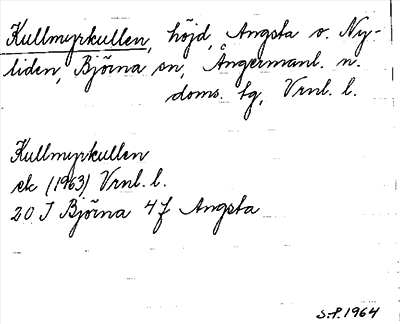 Kullmyrkullen, höjd, Angsta o. Ny-
liden, Björna sn, Ångermanl. n.
doms. tg, Vrnl. l.
Kullmyrkullen
ek (1963) Vrnl. l.
20 J Björna 4 f Angsta
S.P. 1964